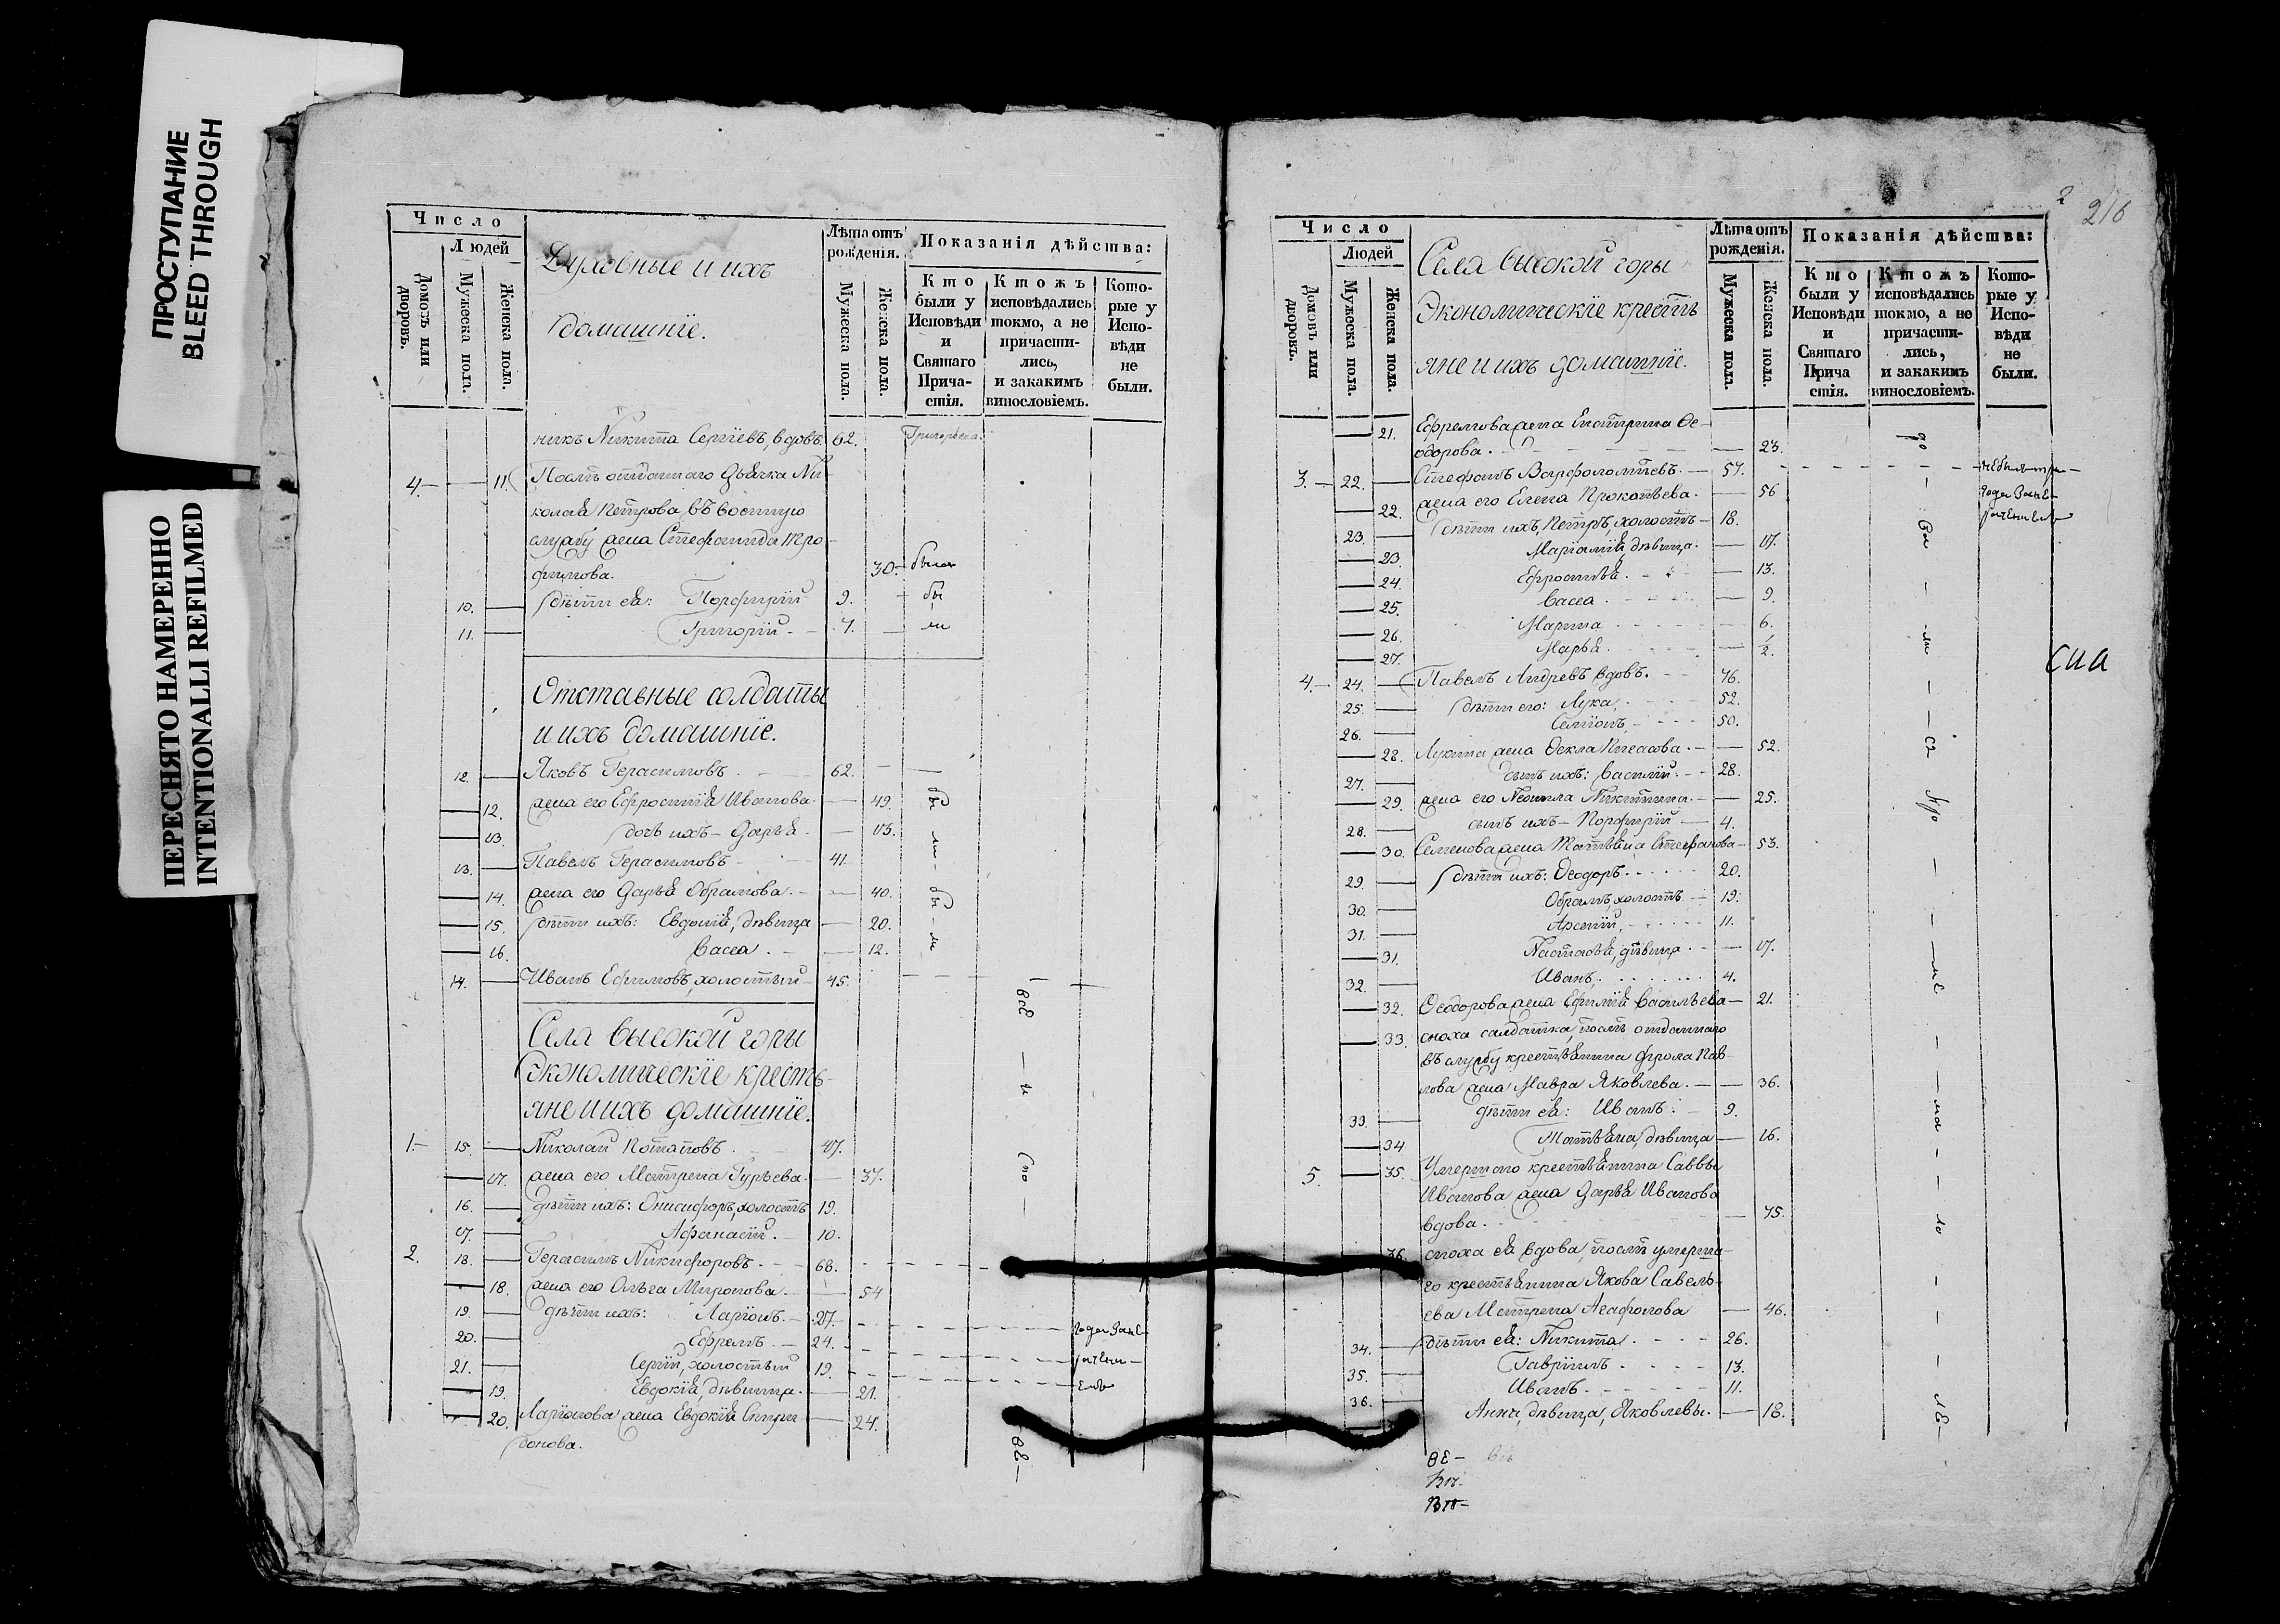 ПРОСТУПАНИЕ
BLEED THROUGH
ПЕРЕСНЯТО НАМЕРЕННО
INTENTIONALLI REFILMED
Число
Людей
Домовъ или дворовъ.
Мужеска пола.
Женска пола.
Духовные и ихъ
домашнiе.
Лѣта отъ рожденiя.
Мужеска пола.
Женска пола.
Показанiя дѣйства:
Кто были у Исповѣди и Святаго Прича-стiя.
Ктожъ исповѣдались токмо, а не причасти-лись, и закакимъ винословiемъ.
Кото-рые у Испо-вѣди не были.
никъ Никита Сергiевъ, вдовъ. 62.
4. — — 11. Послѣ отданнаго дьячка Ни-
колая Петрова въ военную
службу жена Степанида Тро-
фимова. 30. была
10. — дѣти ея: Порфирiй 9. — бы
11. — Григорiй. — 7. — ли
Отставные солдаты
и ихъ домашнiе.
12. — Яковъ Герасимовъ. — 62. —
— 12. жена его Ефросинiя Иванова. — 49. бы
— 13. дочь ихъ — Дарья. — 13. ли
13. — Павелъ Герасимовъ — 41.
— 14. жена его Дарья Обрамова. — 40. бы
— 15. дѣти ихъ: Евдокiя, дѣвица — 20.
— 16. Васса. — 12. ли
14. — Иванъ Ефимовъ, холостый — 45.
Села Высокой горы
Экономическiе кресть-
яне и ихъ домашнiе.
1. — 15. — Николай Потаповъ. 47.
— 17. жена его Матрена Гурьева. — 37.
16. — дѣти ихъ: Онисифоръ, холостъ 19.
17. — Афанасiй. — 10.
2. 18. — Герасимъ Никифоровъ. — 68.
— 18. жена его Ольга Миронова. — 54
19. — дѣти ихъ: Ларiонъ. — 27.
20. — Ефремъ. — 24.
21. — Сергiй, холостый 19.
— 19. Евдокiя, дѣвица. — 21.
— 20. Ларiонова жена Евдокiя Спири-— 24.
донова.
2
216
Число
Людей
Домовъ или дворовъ.
Мужеска пола.
Женска пола.
Села Высокой горы
Экономическiе кресть
яне и ихъ домашнiе.
Лѣта отъ рожденiя.
Мужеска пола.
Женска пола.
Показанiя дѣйства:
Кто были у Исповѣди и Святаго Прича стiя.
Ктожъ исповѣдались токмо, а не причасти-лись, и закакимъ винословiемъ.
Кото-рые у Испо-вѣди не были.
— 21. Ефремова жена Екатерина Ѳе-
одорова. — 23.
3. — 22. — Стефанъ Варфоломѣевъ. — 57.
— 22. жена его Елена Прокопьева. — 56
23. — дѣти ихъ, Петръ, холостъ — 18.
— 23. Марiамiя, дѣвица. — 17.
— 24. Ефросинья. — 13.
— 25. Васса. — 9.
— 26. Марина — 6.
— 27. Марья. — 2.
4. — 24. — Павелъ Андреевъ вдовъ. 76.
25. — дѣти его: Лука, 52.
26. — Семiонъ, 50.
— 28. Лукина жена Ѳекла Киасова. — 52.
27. — сынъ ихъ: Василiй. 28.
— 29. жена его Неонила Никитина. — 25.
28. — сынъ ихъ — Порфирiй — 4.
— 30. Семенова жена Татьяна Стефанова — 53.
29. — дѣти ихъ: Ѳеодоръ. 20.
30. — Обрамъ, холостъ — 19.
31. — Арсенiй, 11.
— 31. Настасья, дѣвица. — 17.
32. — Иванъ. 4.
— 32. Ѳеодорова жена Ефимiя Васильева — 21.
— 33. сноха салдатка, послѣ отданнаго
въ службу крестьянина Фрола Пав-
лова жена Мавра Яковлева. — 36.
33. — дѣти ея: Иванъ. — 9.
— 34 Татьяна, дѣвица — 16.
5. — 35. Умершаго крестьянина Саввы
Иванова жена Дарья Иванова
вдова. — 75.
36. сноха ея вдова, послѣ умерша-
го крестьянина Якова Савель-
ева Матрена Агафонова — 46.
34. — дѣти ея: Никита. 26.
35. — Гаврiилъ. 13.
36. — Иванъ. 11.
Анна, дѣвица, Яковлевы. — 18.